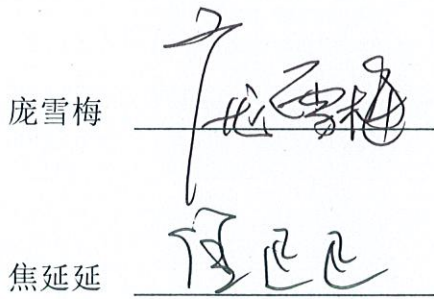 庞雪梅 庞雪梅
焦延延 焦延延